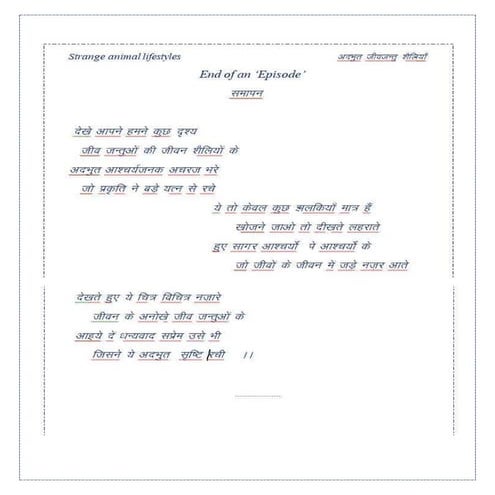 Strange animal lifestyles
अदभुत जीवजन्तु शैलियाँ
End of an ‘Episode’
समापन
देखे आपने हमने कुछ दृश्य
जीव जन्तुओं की जीवन शैलियों के
अदभुत आश्चर्यजनक अचरज भरे
जो प्रकृति ने बड़े यत्न से रचे
ये तो केवल कुछ झलकियाँ मात्र हैं
खोजने जाओ तो दीखते लहराते
हुए सागर आश्चर्यो पे आश्चर्यो के
जो जीवों के जीवन में जड़े नजर आते
देखते हुए ये चित्र विचित्र नजारे
जीवन के अनोखे जीव जन्तुओं के
आइये दें धन्यवाद सप्रेम उसे भी
जिसने ये अदभुत सृष्टि रची ।।